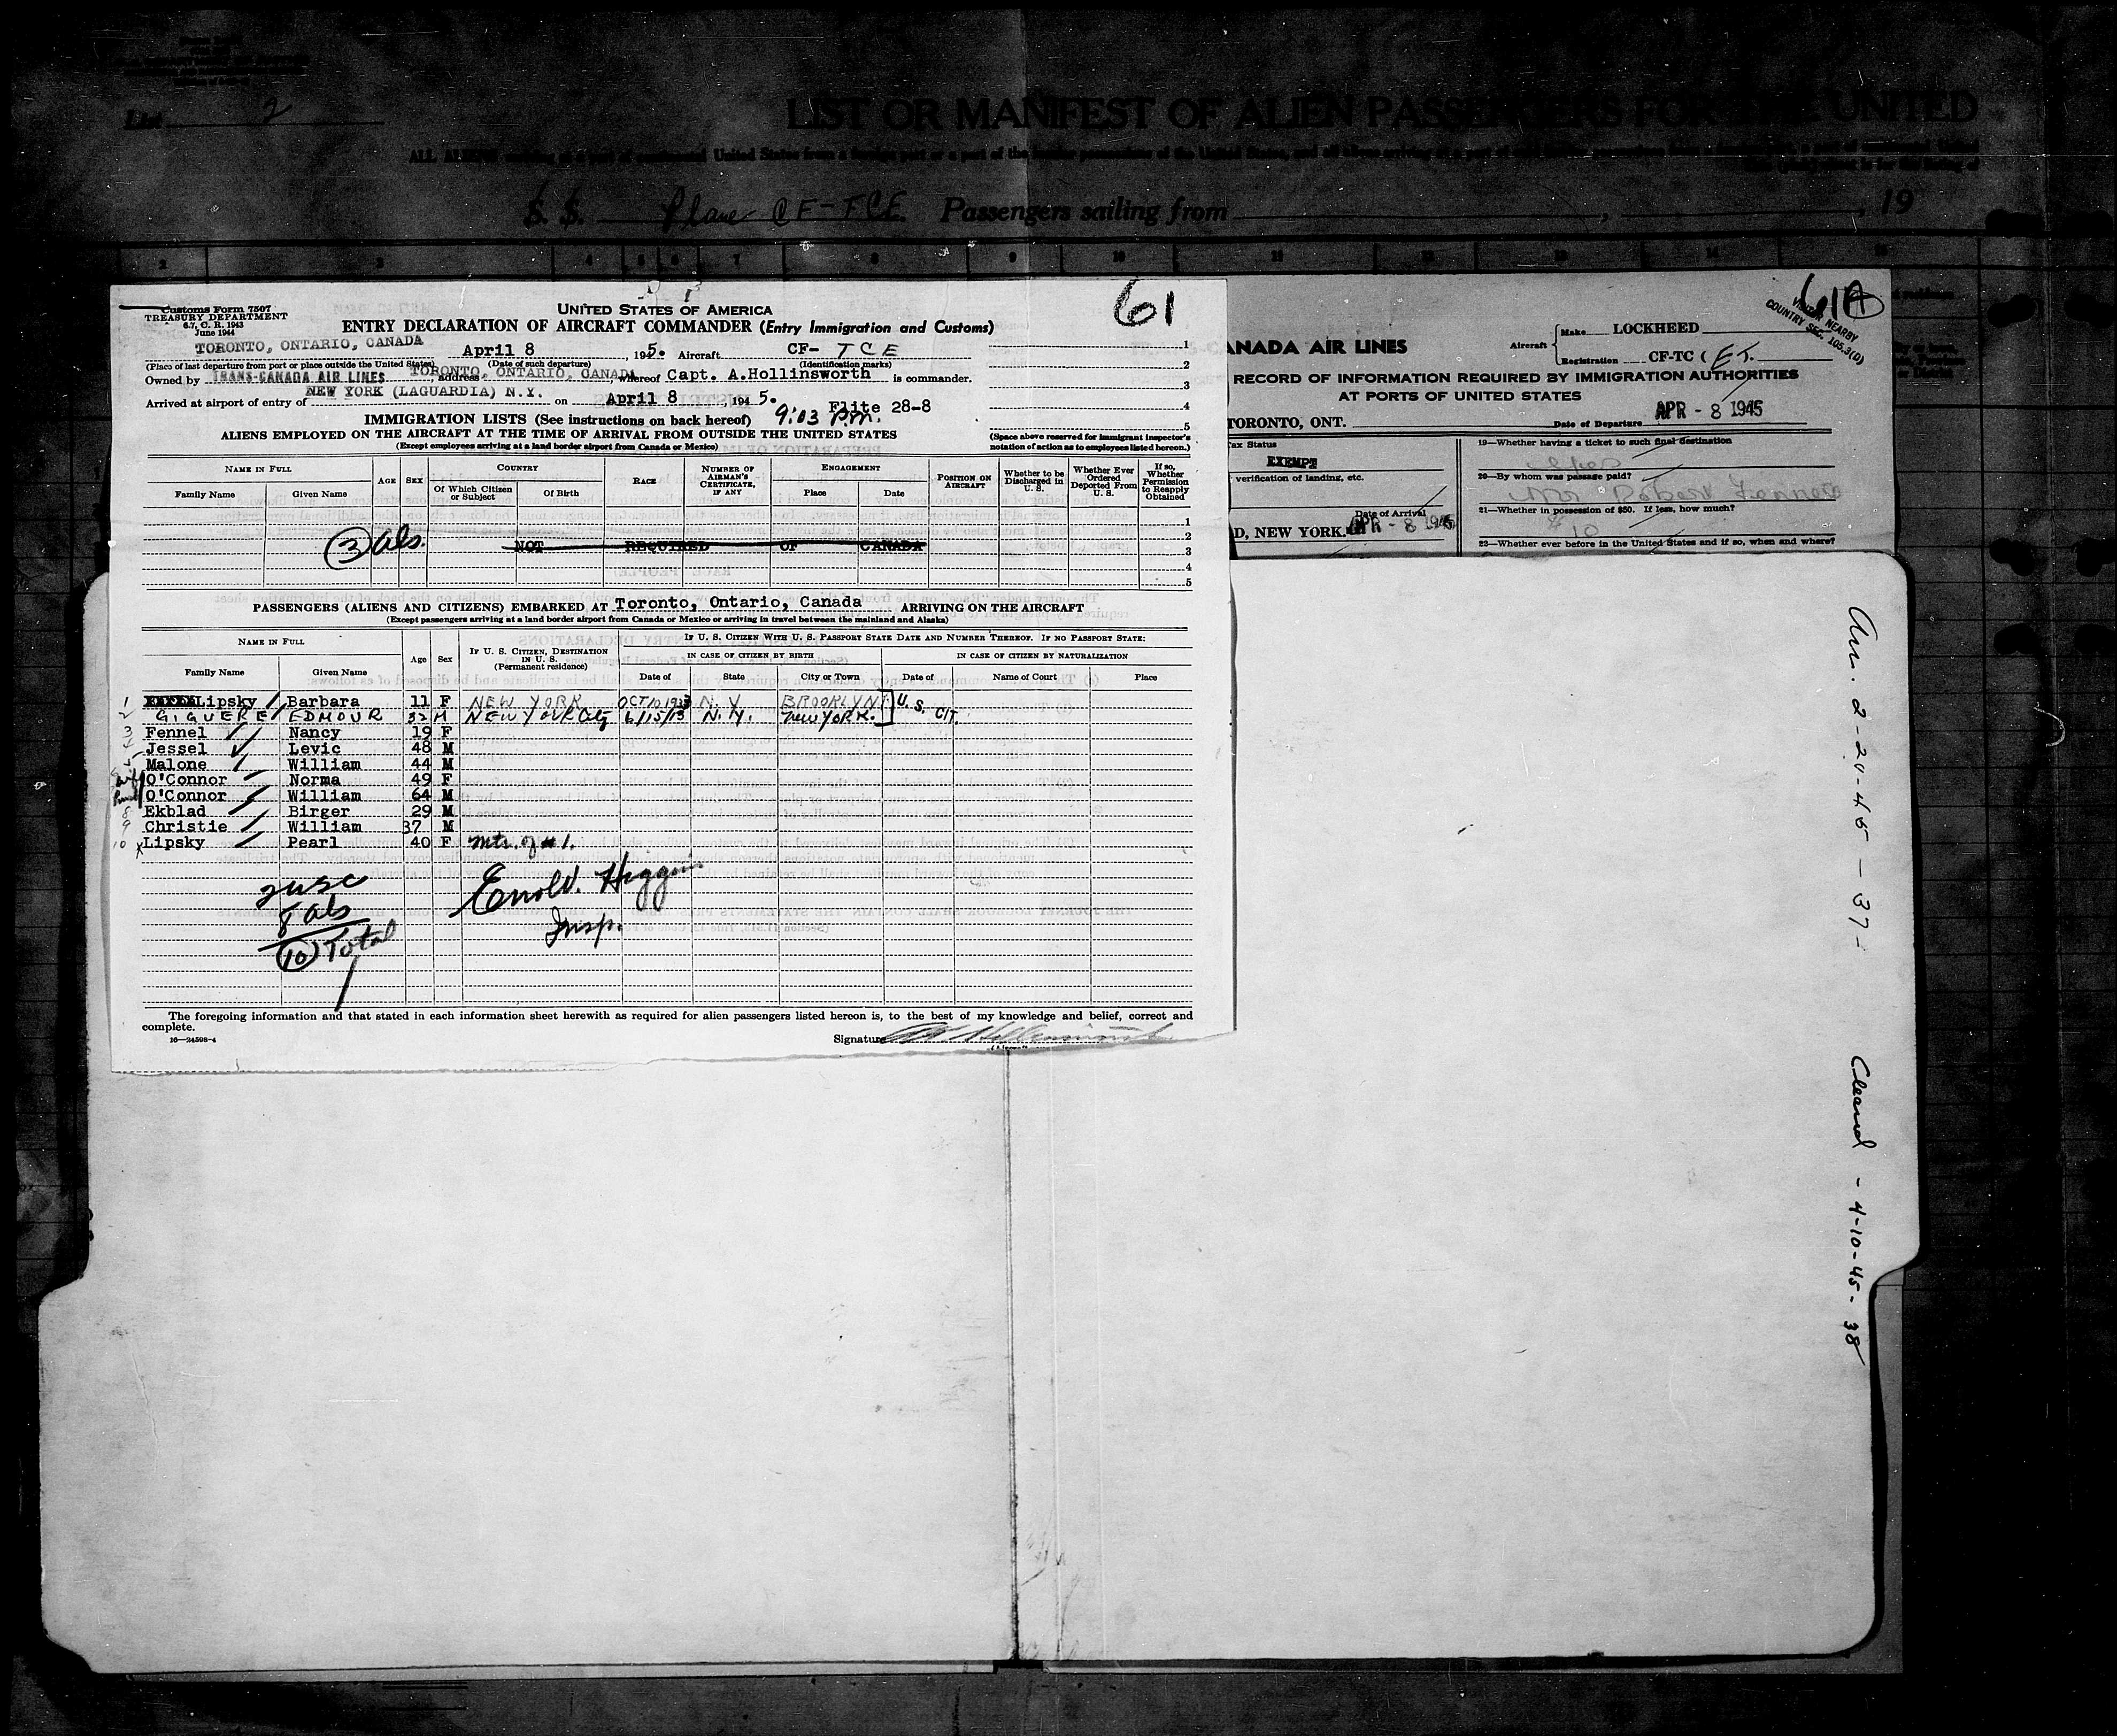 List 2
LIST OR MANIFEST OF ALIEN PASSENGERS FOR THE UNITED
S. S. Plane CF-TCE Passengers sailing from , , 19
2 3 4 5 6 7 8 9 10 11 12 13 14
61
Customs Form 7507
TREASURY DEPARTMENT
6.7, C. R. 1943
June 1944
UNITED STATES OF AMERICA
ENTRY DECLARATION OF AIRCRAFT COMMANDER (Entry Immigration and Customs)
TORONTO, ONTARIO, CANADA April 8, 1945. Aircraft CF- TCE
(Place of last departure from port or place outside the United States) (Date of such departure) (Identification marks)
Owned by TRANS-CANADA AIR LINES, address TORONTO, ONTARIO, CANADA, whereof Capt. A.Hollinsworth is commander.
Arrived at airport of entry of NEW YORK (LAGUARDIA) N.Y. on April 8, 1945. Flite 28-8
IMMIGRATION LISTS (See instructions on back hereof) 9:03 P.M.
ALIENS EMPLOYED ON THE AIRCRAFT AT THE TIME OF ARRIVAL FROM OUTSIDE THE UNITED STATES
(Except employees arriving at a land border airport from Canada or Mexico)
1
2
3
4
5
(Space above reserved for immigrant inspector's notation of action as to employees listed hereon.)
NAME IN FULL AGE SEX COUNTRY RACE NUMBER OF AIRMAN'S CERTIFICATE, IF ANY ENGAGEMENT POSITION ON AIRCRAFT Whether to be Discharged in U. S. Whether Ever Ordered Deported From U. S. If so, Whether Permission to Reapply Obtained
Family Name Given Name Of Which Citizen or Subject Of Birth Place Date
1
2
3 als. NOT REQUIRED OF CANADA 3
4
5
PASSENGERS (ALIENS AND CITIZENS) EMBARKED AT Toronto, Ontario, Canada ARRIVING ON THE AIRCRAFT
(Except passengers arriving at a land border airport from Canada or Mexico or arriving in travel between the mainland and Alaska)
NAME IN FULL Age Sex IF U. S. CITIZEN, DESTINATION IN U. S. (Permanent residence) IF U. S. CITIZEN WITH U. S. PASSPORT STATE DATE AND NUMBER THEREOF. IF NO PASSPORT STATE:
IN CASE OF CITIZEN BY BIRTH IN CASE OF CITIZEN BY NATURALIZATION
Family Name Given Name Date of State City or Town Date of Name of Court Place
1 Lipsky Barbara 11 F NEW YORK OCT 10 1933 N. Y BROOKLYN U. S. CIT.
2 GIGUERE EDMOUR 32 M NEW YOUR City 6/15/13 N. Y. New YORK.
3 Fennel Nancy 19 F
4 Jessel Levic 48 M
5 Malone William 44 M
O'Connor Norma 49 F
O'Connor William 64 M
8 Ekblad Birger 29 M
9 Christie William 37 M
10 x Lipsky Pearl 40 F Mtr. of #1.
2 usc
8 als
10 Total
Errol V. Higgins
Insp.
The foregoing information and that stated in each information sheet herewith as required for alien passengers listed hereon is, to the best of my knowledge and belief, correct and
complete.
16—24598-4
Signature
61A
VISITOR NEARBY
COUNTRY SEC. 105.3(D)
CANADA AIR LINES
Aircraft Make LOCKHEED
Registration CF-TC (E).
RECORD OF INFORMATION REQUIRED BY IMMIGRATION AUTHORITIES
AT PORTS OF UNITED STATES
TORONTO, ONT. Date of Departure APR - 8 1945
Tax Status
EXEMPT
verification of landing, etc.
Date of Arrival
D, NEW YORK. APR - 8 1945
19—Whether having a ticket to such final destination
yes
20—By whom was passage paid?
Mr Robert Fennell
21—Whether in possession of $50. If less, how much?
$10
22—Whether ever before in the United States and if so, when and where?
Arr. 2-20-45 - 37-
Cleared - 4-10-45- 38